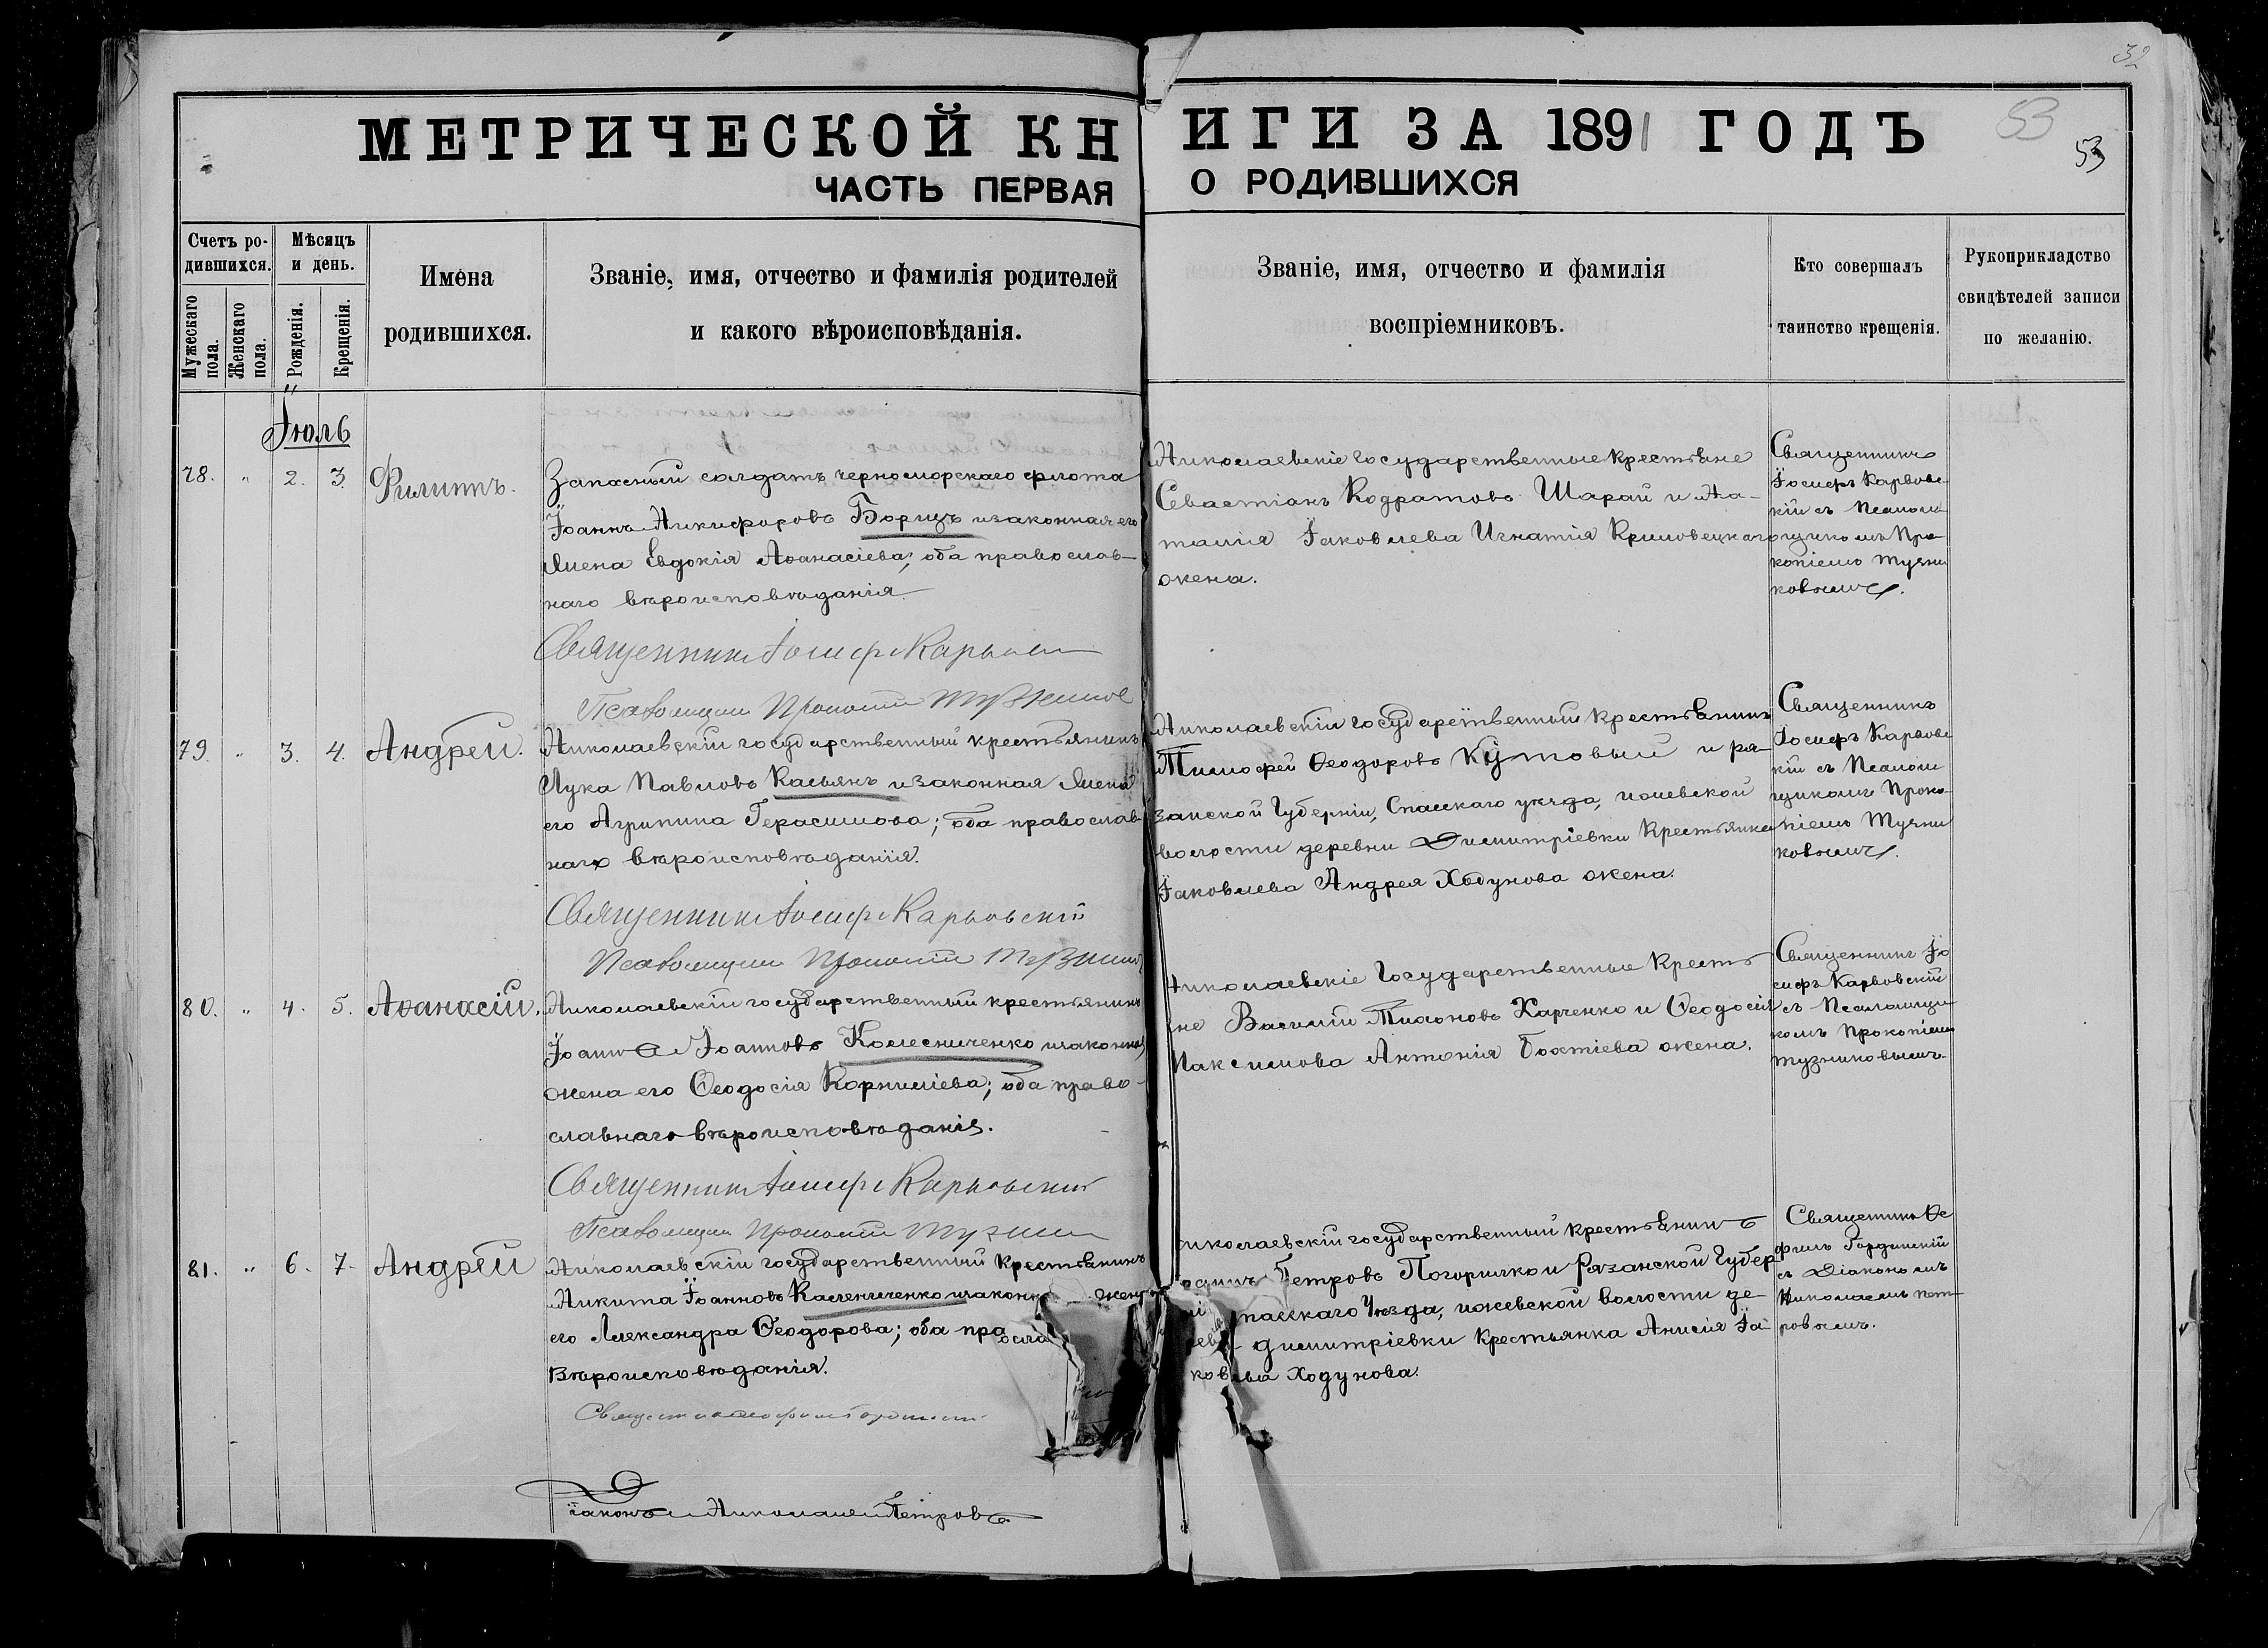 32
МЕТРИЧЕСКОЙ КНИГИ ЗА 1891 ГОДЪ
53
53
ЧАСТЬ ПЕРВАЯ О РОДИВШИХСЯ
Счетъ ро-
дившихся.
Мужескаго пола.
Женскаго пола.
Мѣсяцъ
и день.
Рожденія.
Крещенія.
Имена
родившихся.
Званіе, имя, отчество и фамилія родителей
и какого вѣроисповѣданія.
Званіе, имя, отчество и фамилія
воспріемниковъ.
Кто совершалъ
таинство крещенія.
Рукоприкладство
свидѣтелей записи
по желанію.
Іюль
78. " 2. 3. Филиппъ.
Запасный солдатъ черноморскаго флота
Іоаннъ Никифоровъ Борицъ и законная его
жена Евдокія Аѳанасіева; оба православ-
наго вѣроисповѣданія.
Николаевскіе государственные крестьяне
Севастіанъ Кодратовъ Шарай и На-
талія Іаковлева Игнатія Криловецкаго
жена.
Священникъ
Іосифъ Карвовс-
кій съ Псалом-
щикомъ Про-
копіемъ
Священникъ Іосифъ
Псаломщикъ Прокопій
79. " 3. 4. Андрей.
Николаевскій государственный крестьянинъ
Лука Павловъ Касьянъ и законная жена
его Агрипина Герасимова; оба православ-
наго вѣроисповѣданія.
Николаевскій государственный крестьянинъ
Тимофей Ѳеодоровъ Кутовый и ря-
занской Губерніи, Спасскаго уѣзда, ижевской
волости деревни Димитріевки Крестьянка
Іаковлева Андрея Ходунова жена.
Священникъ
Іосифъ Карвовс
кій съ Псалом
щикомъ Проко-
піемъ
Священникъ Іосифъ Карвовскій
Псаломщикъ Прокопій
80. " 4. 5. Аѳанасій.
Николаевскій государственный крестьянинъ
Іоаннъ Іоанновъ Колесниченко и законная
жена его Ѳеодосія Корниліева; оба право-
славнаго вѣроисповѣданія.
Николаевскіе Государственные Кресть
яне Василій Тихоновъ Харченко и Ѳеодосія
Максимова Антонія жена.
Священникъ Іо
сифъ Карвовскій
съ Псаломщи
комъ Прокопіемъ
Священникъ Іосифъ Карвовскій
Псаломщикъ Прокопій
81. " 6. 7. Андрей
Николаевскій государственный крестьянинъ
Никита Іоанновъ жена
его Александра Ѳеодорова; оба
вѣроисповѣданія.
николаевскій государственный крестьянинъ
Петровъ Погорилко и Рязанской Губер
пасскаго Уѣзда, ижевской волости де-
димитріевки крестьянка Анисія Іа-
ковлева Ходунова.
Священникъ Ѳе
съ Діакономъ
Николаемъ Пет
ровымъ.
Діаконъ Николай Петровъ